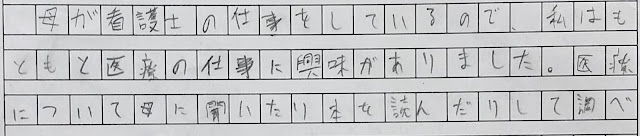 母が看護士の仕事をしているので、私はも
ともと医療の仕事に興味がありました。医療
について母に聞いたり本を読んだりして調べ